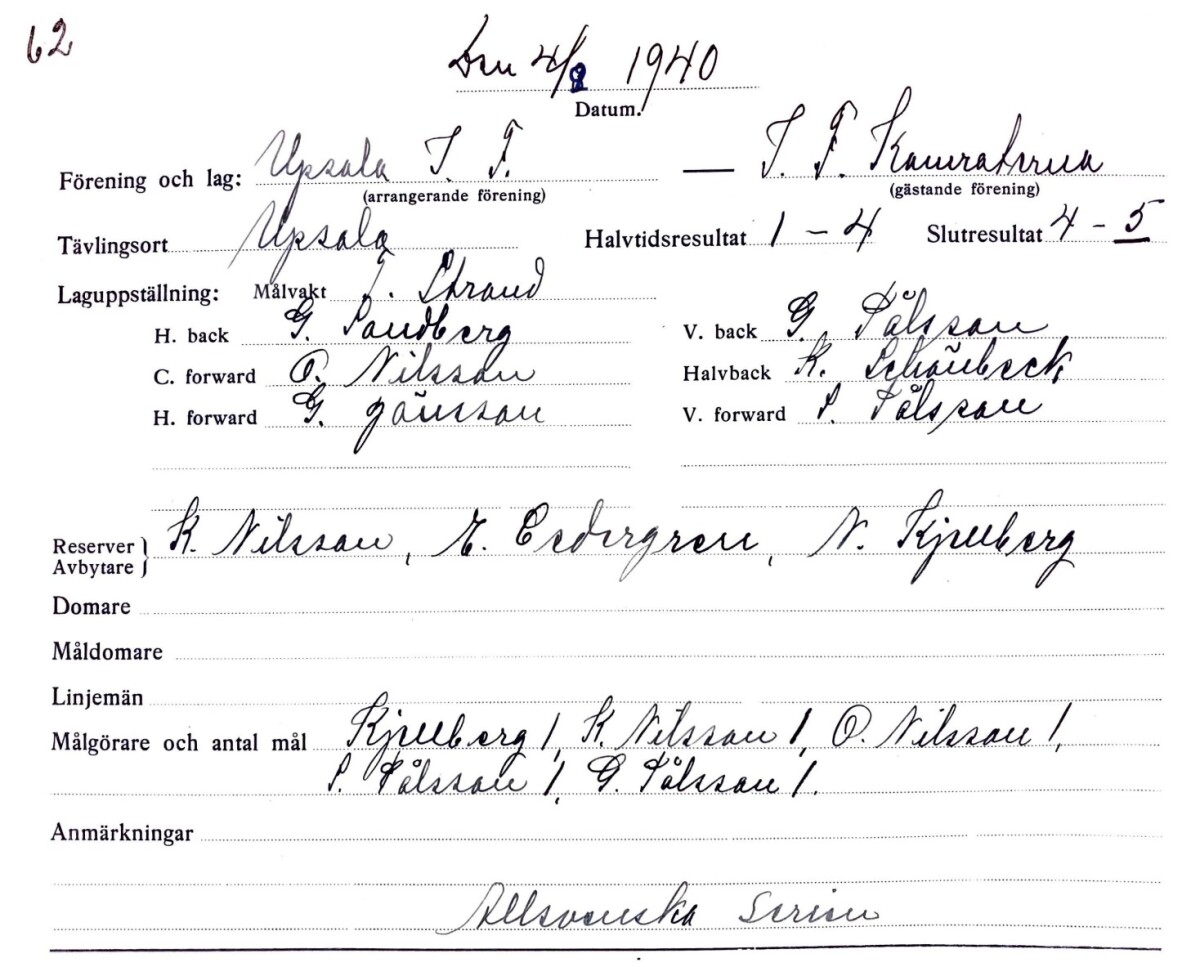 62
Den 4/8 1940
Datum.
Förening och lag: Upsala I. F. — I. F. Kamraterna
(arrangerande förening) (gästande förening)
Tävlingsort Upsala Halvtidsresultat 1 - 4 Slutresultat 4 - 5
Laguppställning: Målvakt T. Strand
H. back G. Sandberg V. back G. Pålsson
C. forward O. Nilsson Halvback K. Schönbeck
H. forward G. Jönsson V. forward S. Pålsson
Reserver Avbytare } K. Nilsson, E. Cedergren, N. Kjellberg
Domare
Måldomare
Linjemän
Målgörare och antal mål Kjellberg 1, K. Nilsson 1, O. Nilsson 1,
S. Pålsson 1, G. Pålsson 1.
Anmärkningar
Allsvenska Serien